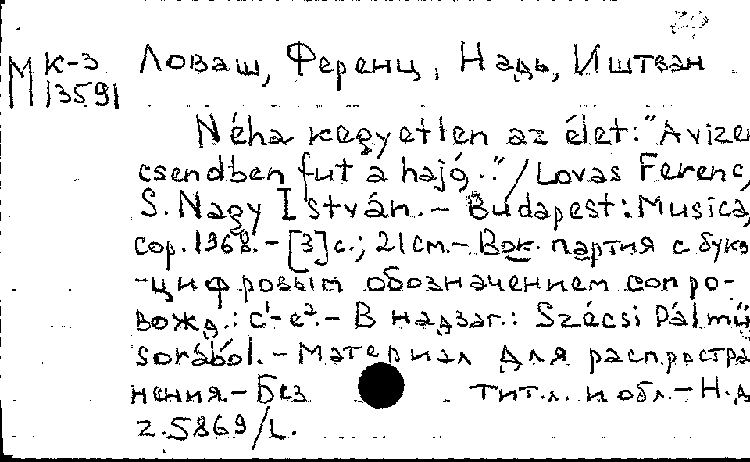 М К-3 Ловаш, Ференц, Надь, Иштван
13591
Néha kegyetlen az élet: "A vizen
csendben fut a hajó.." / Lovas Ferenc,
S. Nagy István. - Budapest: Musica,
cop. 1968. - [3] с.; 21 см. - Вок. партия с букв
-цифровым обозначением сопро-
вожд.: c¹-e². - В надзаг.: Szécsi Pál mű
sorából. - Материал для распростра
нения. - Без тит. л. и обл. - Н.д
Z.5869/L.